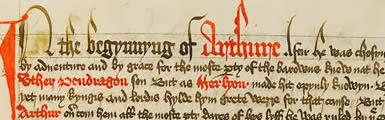 In the begynnyng of Arthure. Aftir he was chosyn
by adventure and by grace for the moste pty of the barowns knew nat he
Uther Pendragon son But as Merlyon made hit opynly knowyn. B
yet many kyngis and lordis hylde hym grete werre for that cause. But
Arthur ou com hem all the moste pty dayes of hys lyff he was ruled by